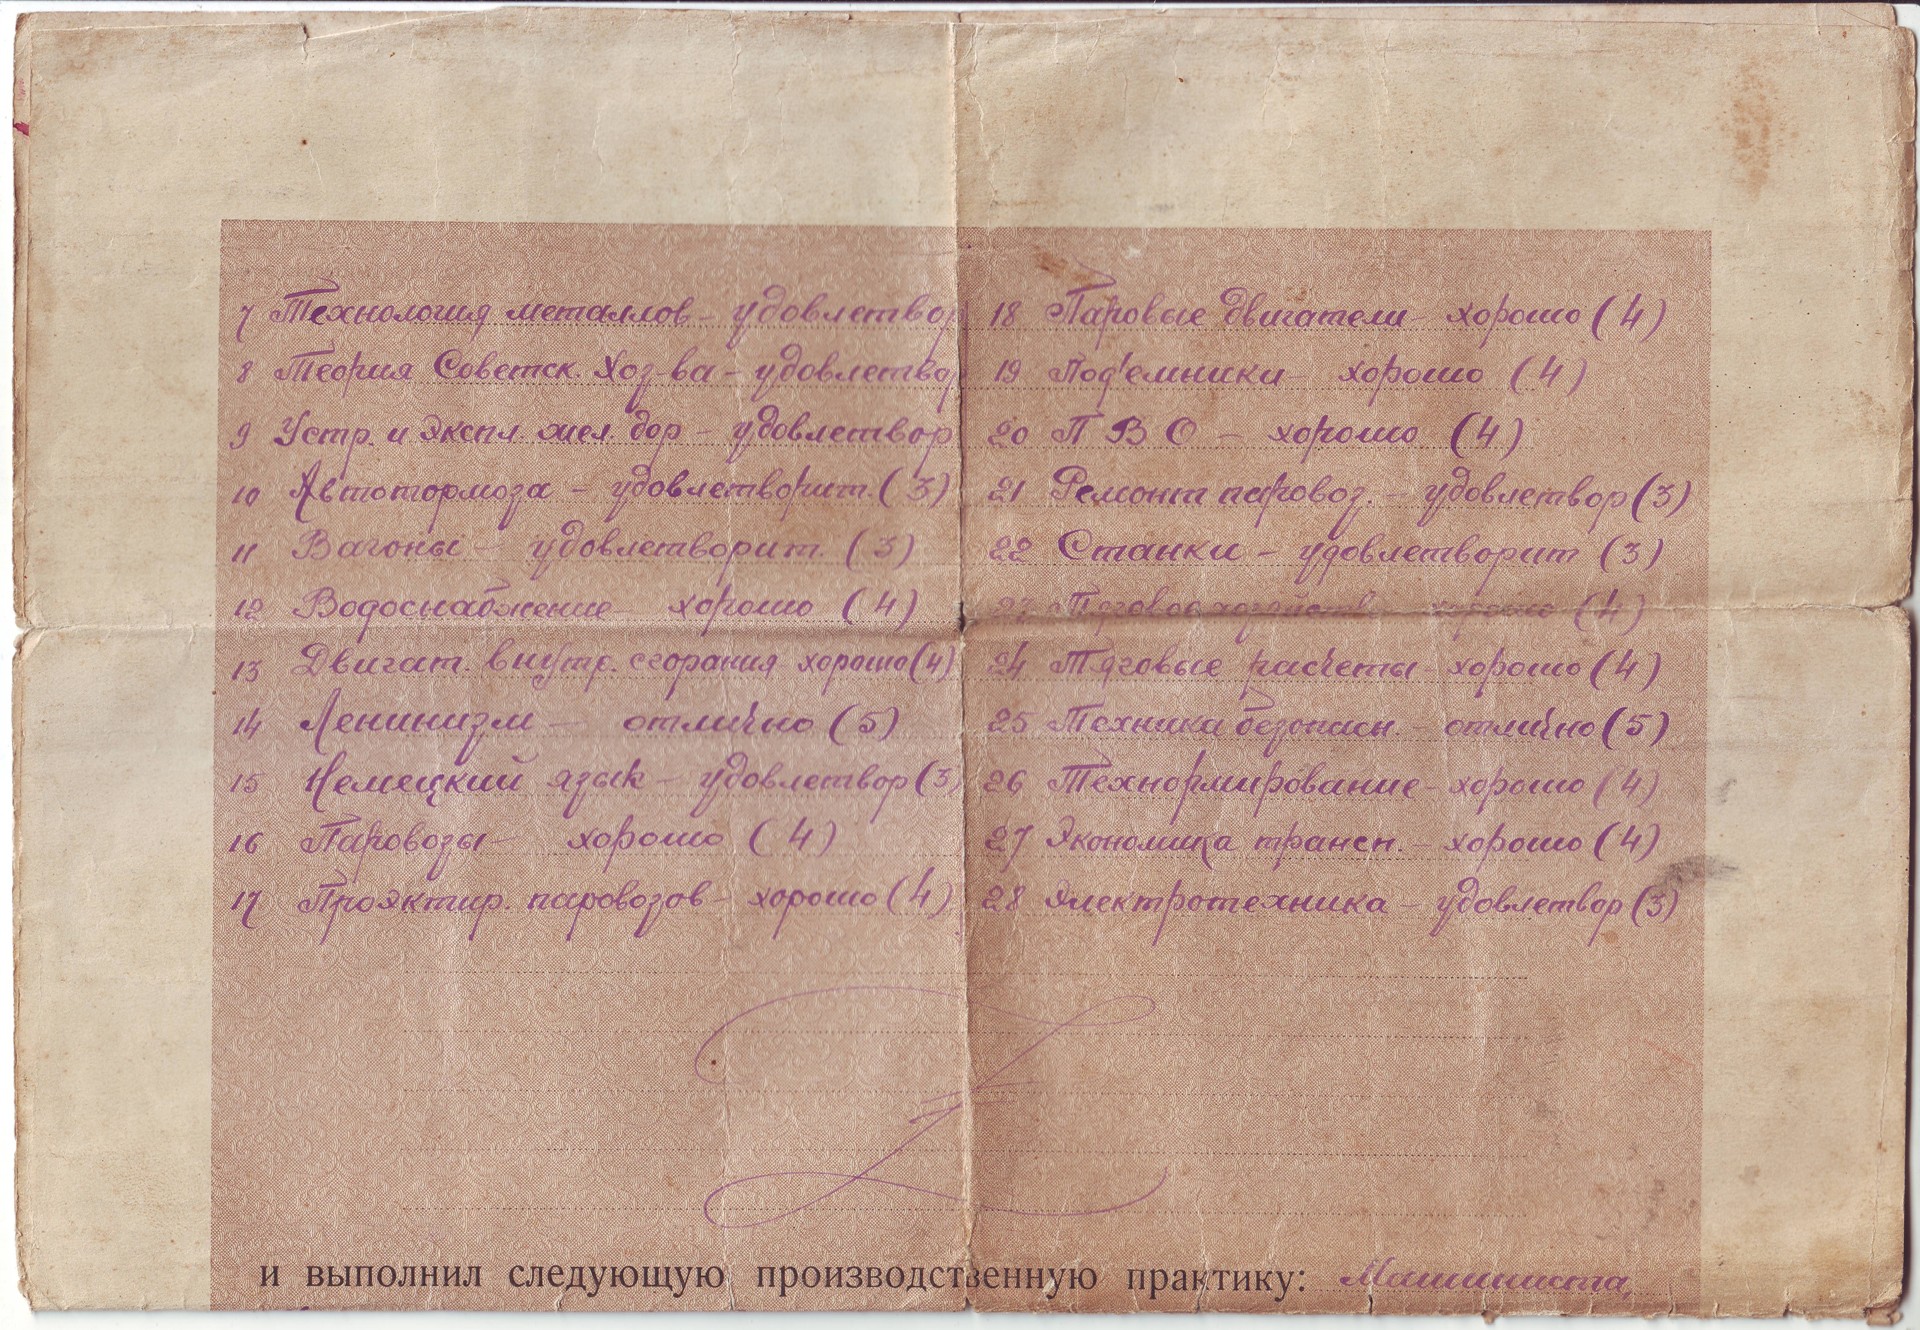 7 Технология металлов - удовлетвор
8 Теория Советск. Хоз-ва - удовлетвор
9 Устр. и экспл. жел. дор - удовлетвор
10 Автотормоза - удовлетворит. (3)
11 Вагоны - удовлетворит. (3)
12 Водоснабжение - хорошо (4)
13 Двигат. внутр. сгорания - хорошо (4)
14 Ленинизм - отлично (5)
15 Немецкий язык - удовлетвор (3)
16 Паровозы - хорошо (4)
17 Проэктир. паровозов - хорошо (4)
18 Паровые двигатели - хорошо (4)
19 Под'емники - хорошо (4)
20 П В О - хорошо (4)
21 Ремонт паровоз. - удовлетвор (3)
22 Станки - удовлетворит (3)
23 Тяговое хозяйство - хорошо (4)
24 Тяговые расчеты - хорошо (4)
25 Техника безопасн. - отлично (5)
26 Технормирование - хорошо (4)
27 Экономика трансп. - хорошо (4)
28 Электротехника - удовлетвор (3)
и выполнил следующую производственную практику: Машиниста,